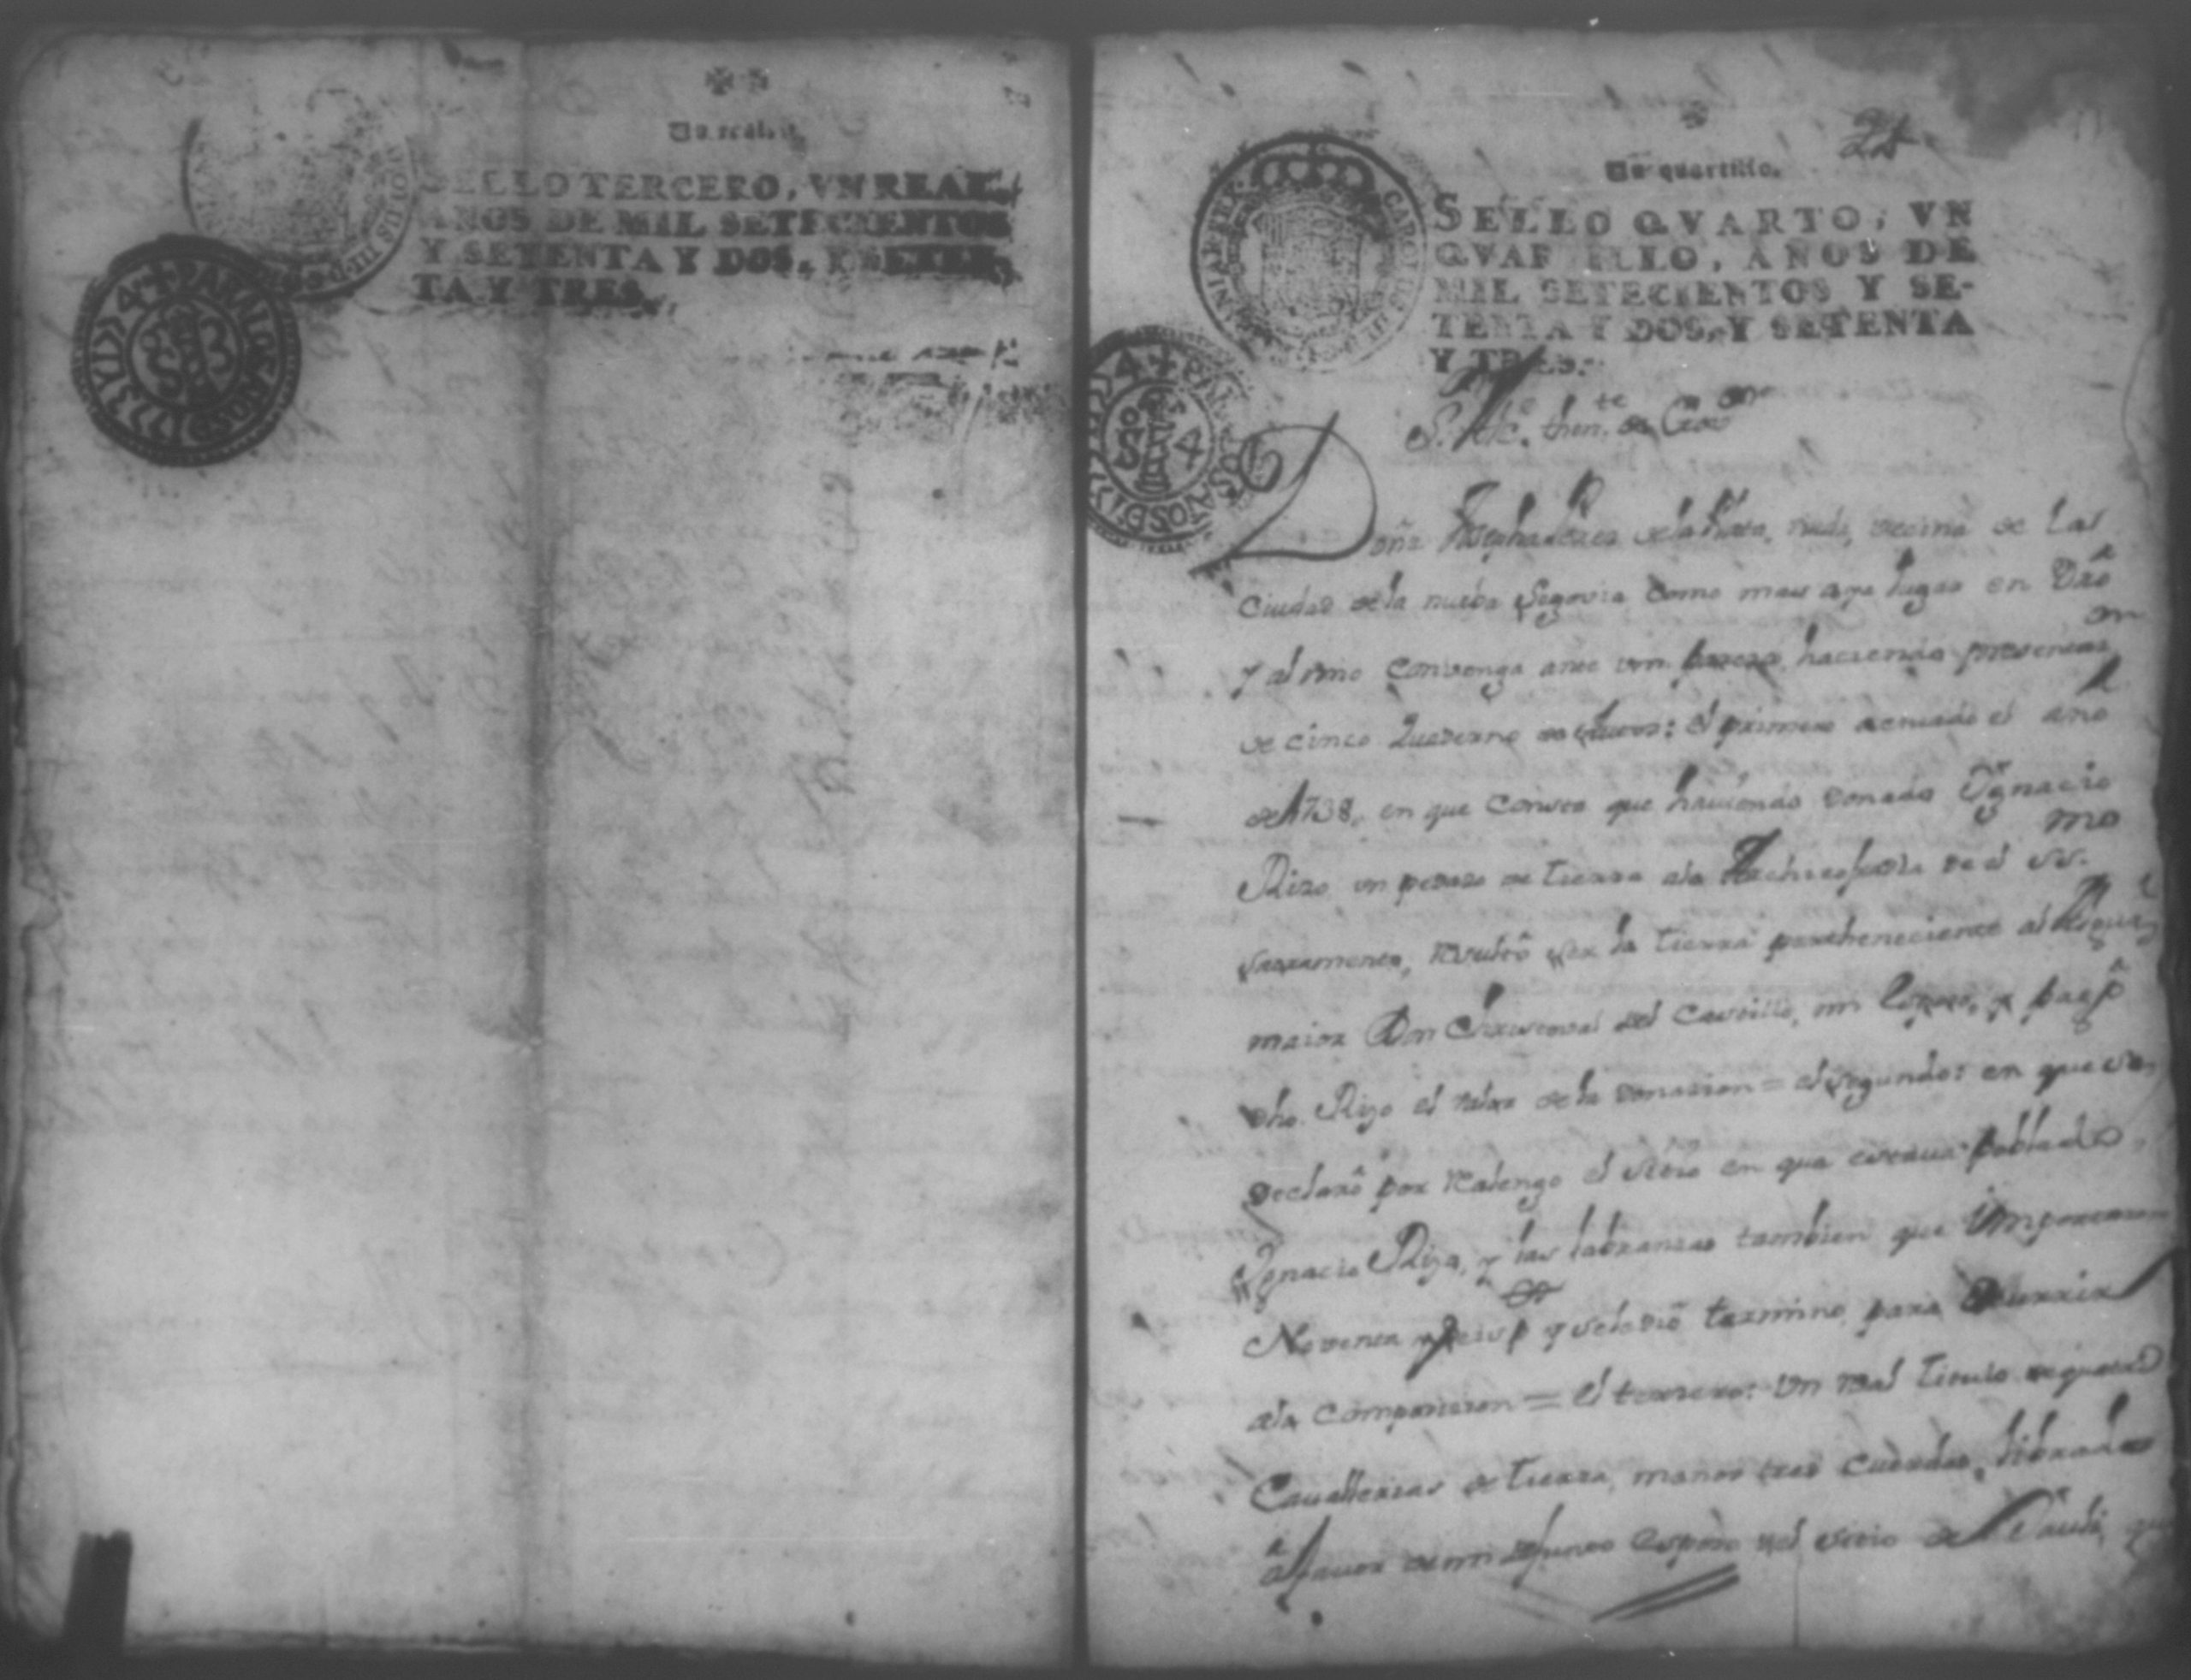 Vn real.
SELLO TERCERO, VN REAL,
AÑOS DE MIL SETECIENTOS
Y SETENTA Y DOS, Y SETEN-
TA Y TRES.
24
Vn quartillo.
SELLO QVARTO, VN
QVARTILLO, AÑOS DE
MIL SETECIENTOS Y SE-
TENTA Y DOS, Y SETENTA
Y TRES.
CAROLUS III
PARA LOS AÑOS D 1774
S 4
S. Alc. then.te de Gov.or
Doña Josepha de la viuda, vecina de la
Ciudad de la nueba Segovia como mas aya lugar en Dro
y al mio Convenga ante vm. parezco haciendo presentas.on
de cinco Quaderno de Autos: el primero actuado el año
de 1738, en que consta que haviendo donado Ygnacio
Rizo un pedazo de tierra ala Archicofradia de el SS.mo
Sacramento, resultó ser la tierra partheneciente al Alguaz.l
maior Don Christoval del Castillo, mi Esposo, y pagó
dho. Rizo el valor de la donacion = el segundo: en que se
declaró por Realengo el sitio en que estava poblado
Ygnacio Rizo, y las labranzas tambien que importaron
Noventa y seis p.s y se le dió termino para Ocurrir
ala Composicion = el tercero: Un Real Titulo de quatro
Cavallerias de tierra, menos tres cuerdas, librado
á favor de mi difunto Esposo del sitio de